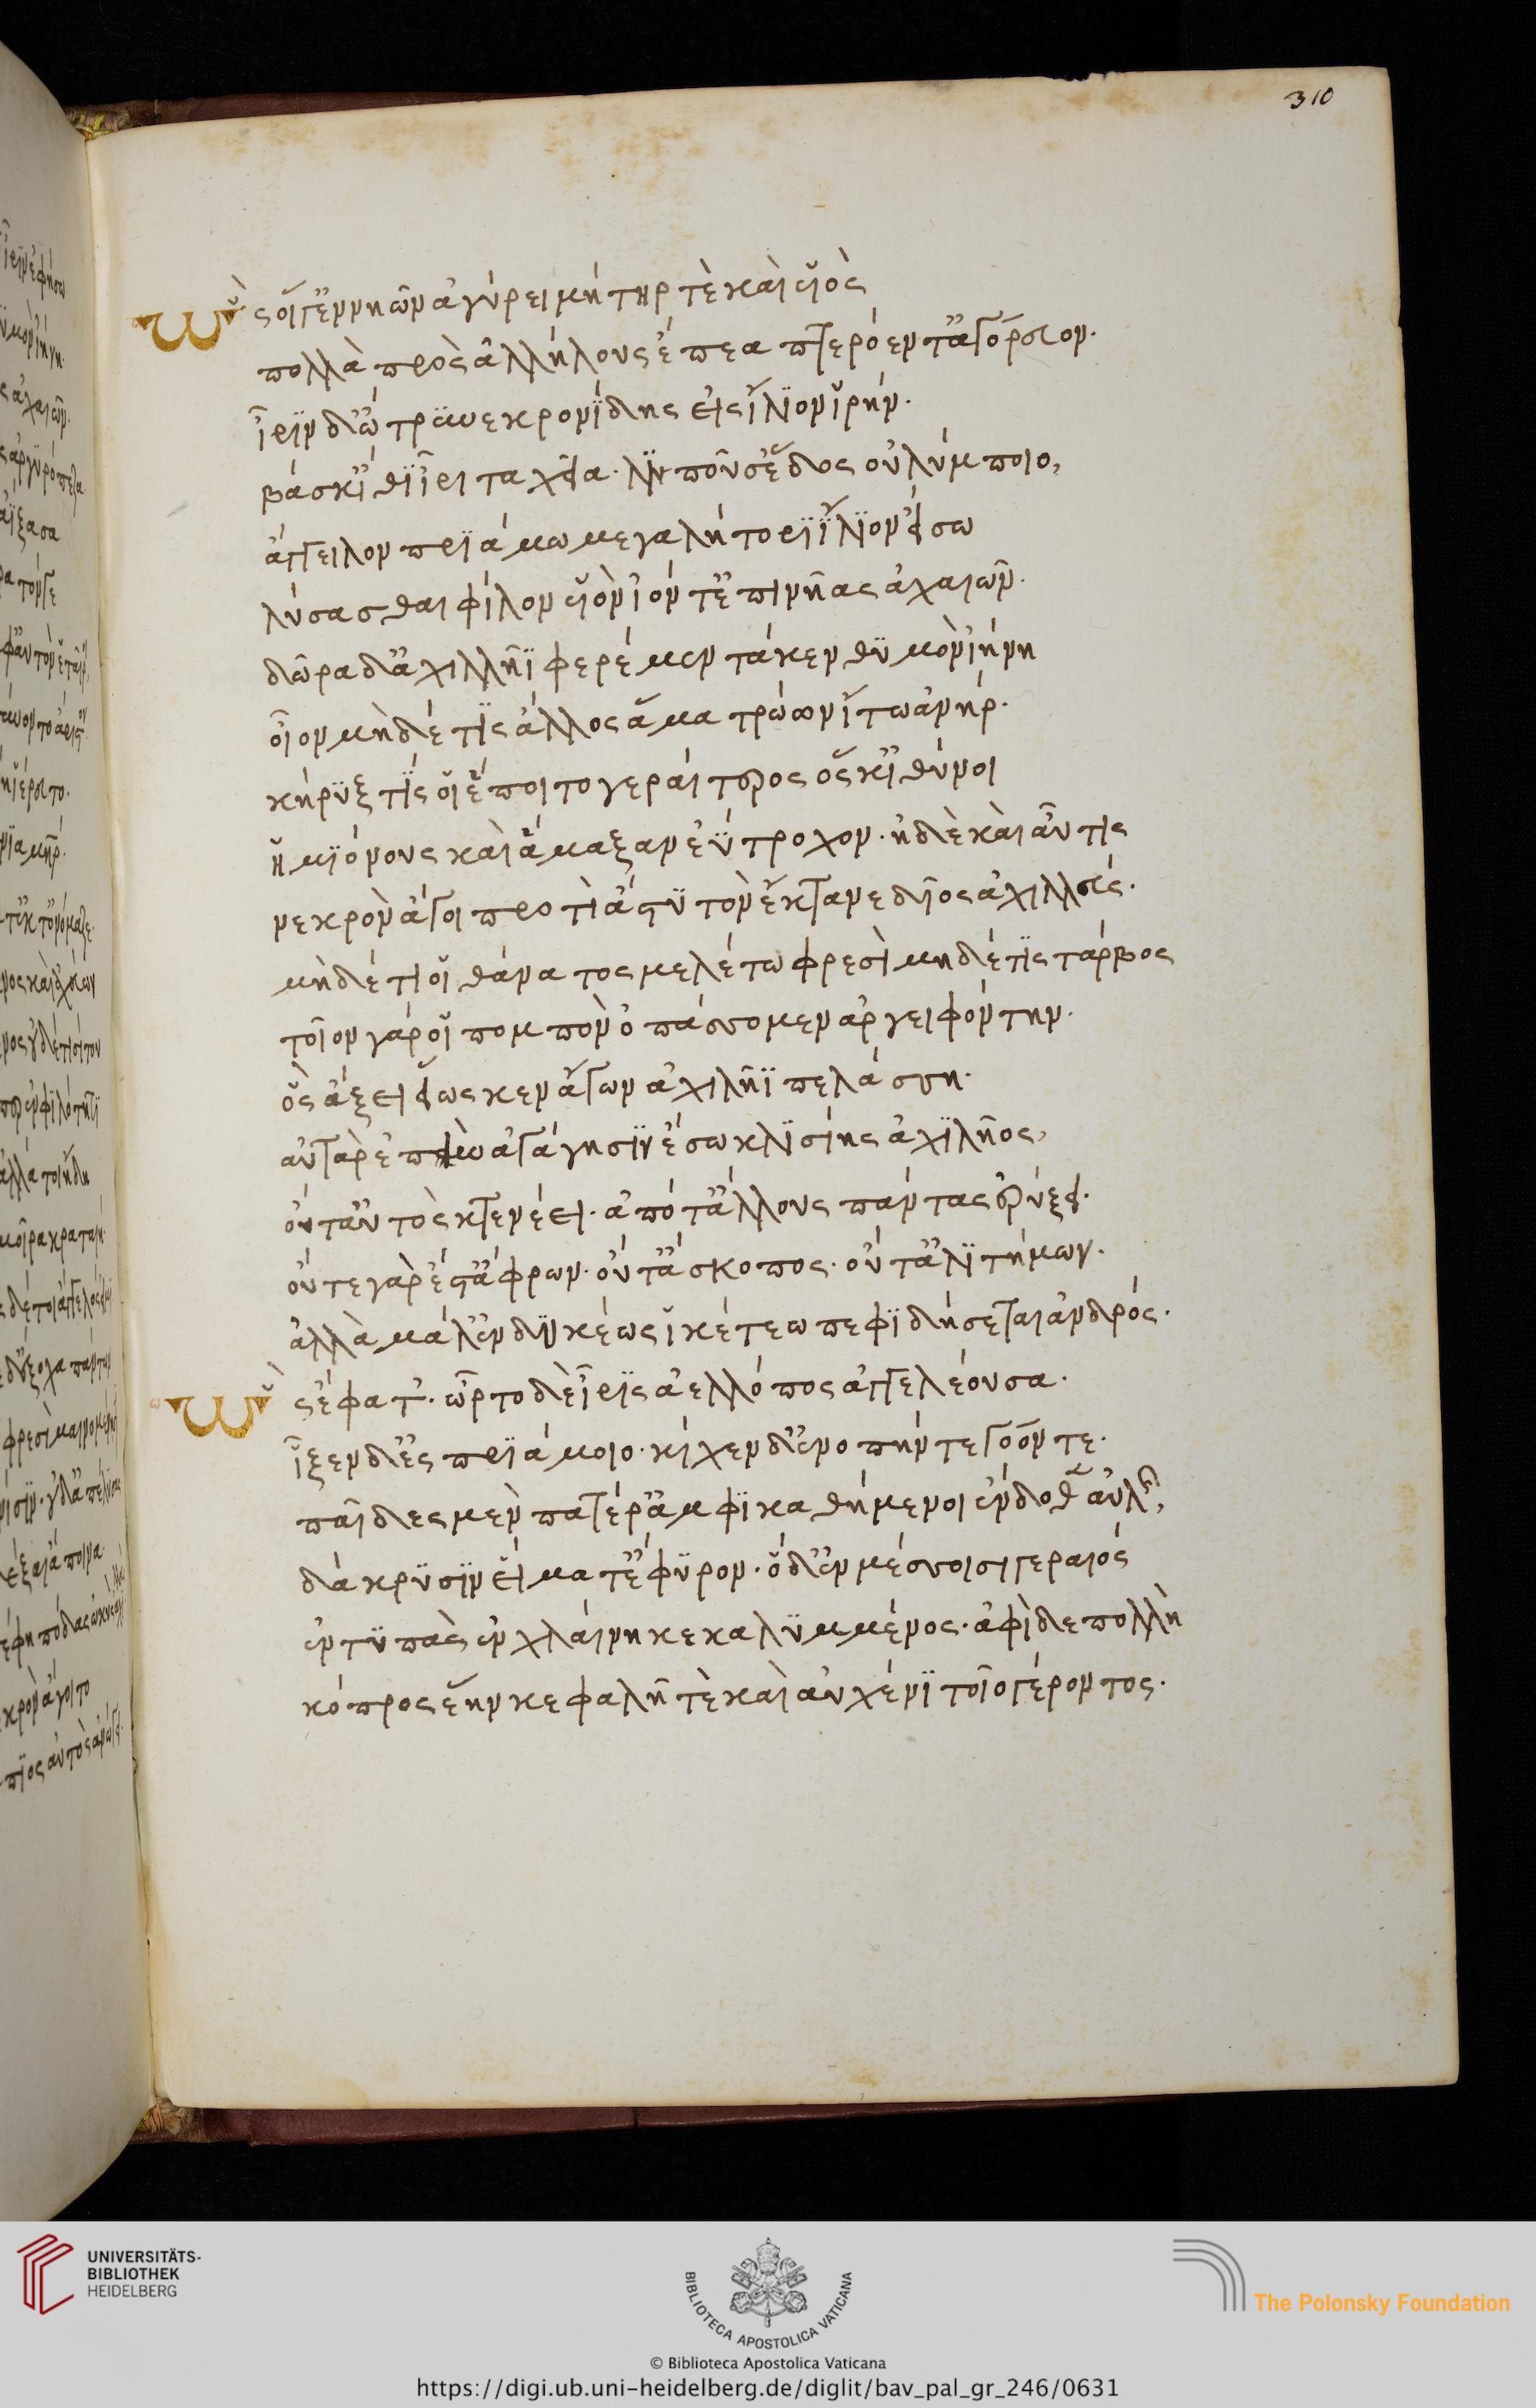 310
Ὣς οἵγ' ἐν νηῶν ἀγύρει μήτηρ τὲ καὶ υἱὸς
πολλὰ πρὸς ἀλλήλους ἔπεα πτερόεντ' ἀγόρευον.
ἶριν δ' ὤτρυνε κρονίδης εἰς ἴλιον ἱρήν.
βάσκ' ἴθι ἶρι ταχεῖα. λιποῦσ' ἕδος οὐλύμποιο,
ἄγγειλον πριάμω μεγαλήτορι ἴλιον εἴσω
λύσασθαι φίλον υἱὸν ἰόντ' ἐπὶ νῆας ἀχαιῶν.
δῶρα δ' ἀχιλλῆϊ φερέμεν τά κεν θυμὸν ἰήνη
οἶον μὴδέ τὶς ἄλλος ἅμα τρώων ἴτω ἀνήρ.
κήρυξ τίς οἱ ἕποιτο γεραίτερος ὅς κ' ἰθύνοι
ἡμιόνους καὶ ἅμαξαν ἐΰτροχον. ἠδὲ καὶ αὖτις
νεκρὸν ἄγοι προτὶ ἄστυ τὸν ἔκτανε δῖος ἀχιλλεύς.
μὴδέ τί οἱ θάνατος μελέτω φρεσὶ μηδέ τίς τάρβος
τοῖον γάρ οἱ πομπὸν ὀπάσσομεν ἀργειφόντην.
ὃς ἄξει εἵως κεν ἄγων ἀχιλῆϊ πελάσση.
αὐτὰρ ἐπὴν ἀγάγησιν ἔσω κλισίης ἀχιλῆος,
οὔτ' αὐτὸς κτενέει. ἀπό τ' ἄλλους πάντας ἐρύξει.
οὔτε γὰρ ἔστ' ἄφρων. οὔτ' ἄσκοπος. οὔτ' ἀλιτήμων.
ἀλλὰ μάλ' ἐνδυκέως ἱκέτεω πεφιδήσεται ἀνδρός.
Ὣς ἔφατ'. ὦρτο δὲ ἶρις ἀελλόπος ἀγγελέουσα.
ἶξεν δ' ἐς πριάμοιο. κίχεν δ' ἐνοπήν τε γόον τε.
παῖδες μὲν πατέρ' ἀμφικαθήμενοι ἔνδοθεν αὐλῆς,
δάκρυσιν εἵματ' ἔφυρον. ὁ δ' ἐν μέσσοισι γεραιός
ἐντυπὰς ἐν χλαίνη κεκαλυμμένος. ἀμφὶ δὲ πολλὴ
κόπρος ἔην κεφαλῆ τὲ καὶ αὐχένι τοῖο γέροντος.
UNIVERSITÄTS-
BIBLIOTHEK
HEIDELBERG
BIBLIOTECA APOSTOLICA VATICANA
The Polonsky Foundation
© Biblioteca Apostolica Vaticana
https://digi.ub.uni-heidelberg.de/diglit/bav_pal_gr_246/0631